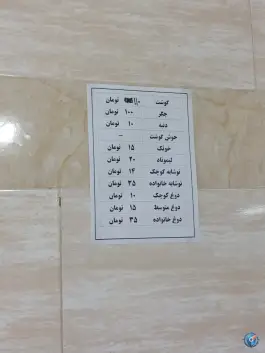 گوشت ۱۱۰ تومان
جگر ۱۰۰ تومان
دنبه ۱۰ تومان
خوش گوشت –
خوئک ۱۵ تومان
لیموناد ۲۰ تومان
نوشابه کوچک ۱۴ تومان
نوشابه خانواده ۳۵ تومان
دوغ کوچک ۱۰ تومان
دوغ متوسط ۱۵ تومان
دوغ خانواده ۳۵ تومان